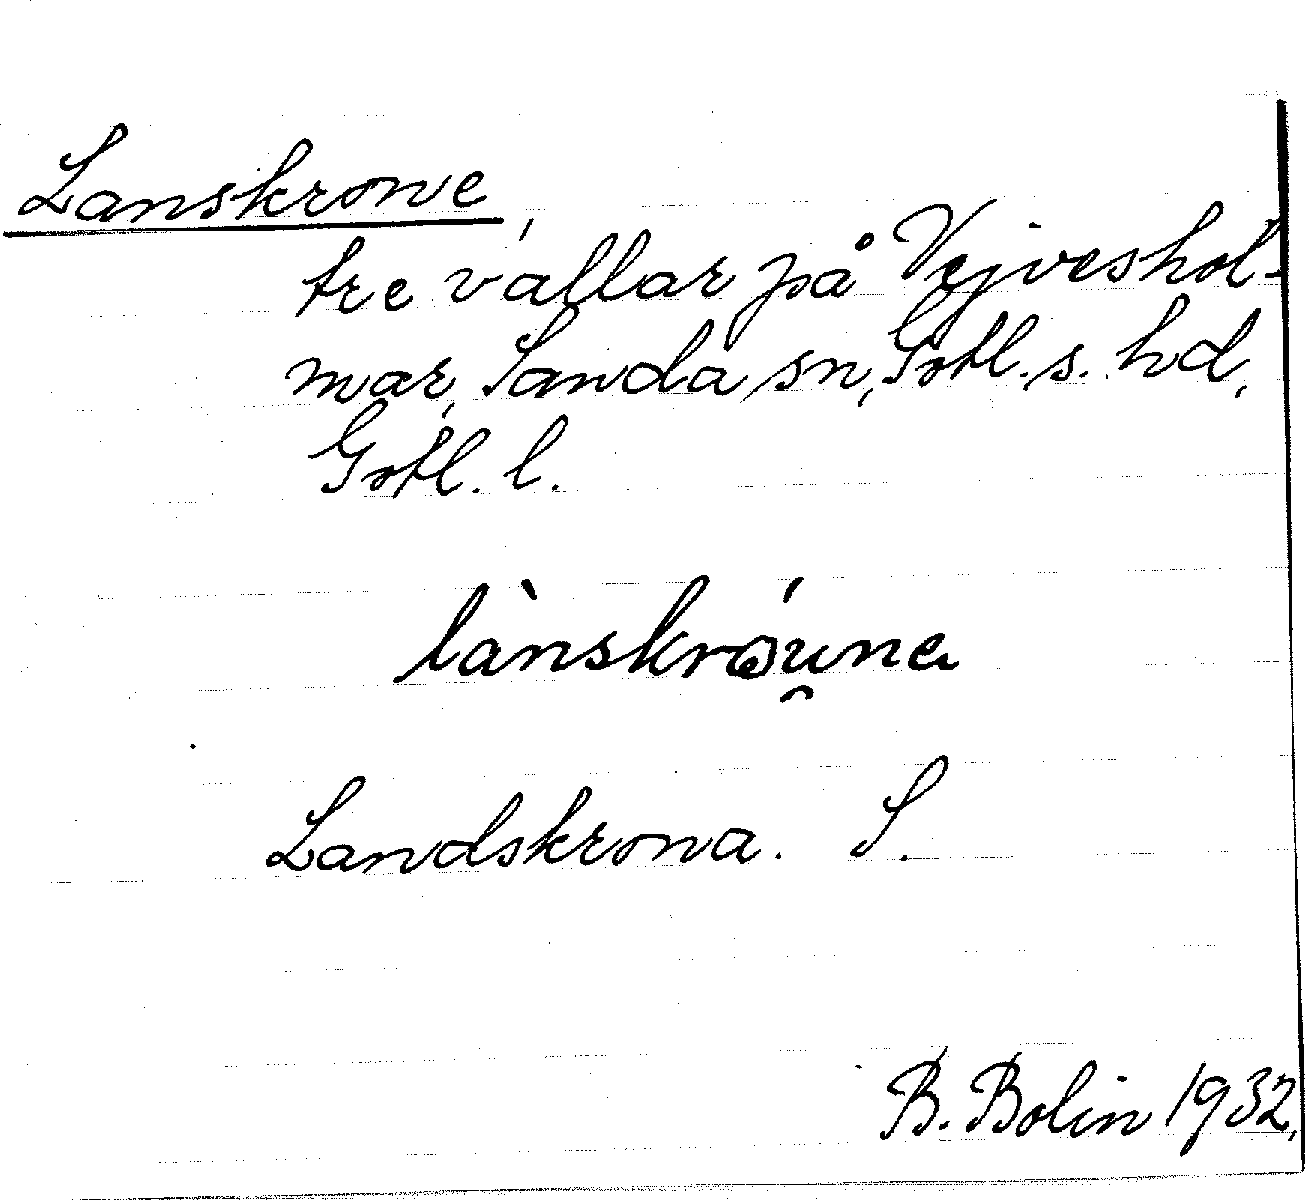 Lanskrone,
tre vallar på Vejveshol-
mar, Sanda sn, Gotl. s. hd,
Gotl. l.
lànskråu̯na
Landskrona. S.
B. Bolin 1932.